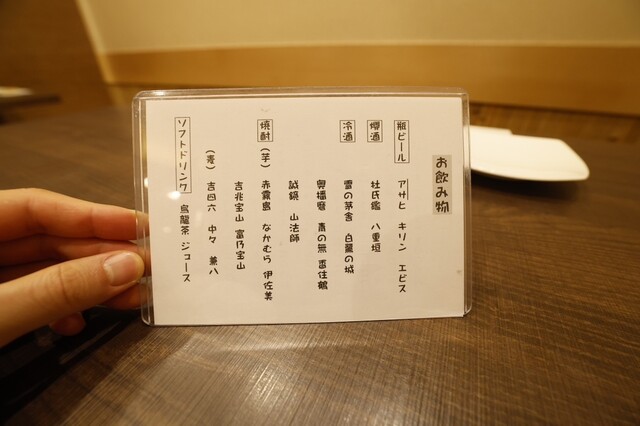 お飲み物
瓶ビール アサヒ キリン エビス
燗酒 杜氏鑑 八重垣
冷酒 雪の茅舎 白鷺の城
奥播磨 香住鶴
誠鏡 山法師
焼酎 (芋) 赤霧島 なかむら 伊佐美
吉兆宝山 富乃宝山
(麦) 吉四六 中々 兼八
ソフトドリンク 烏龍茶 ジュース